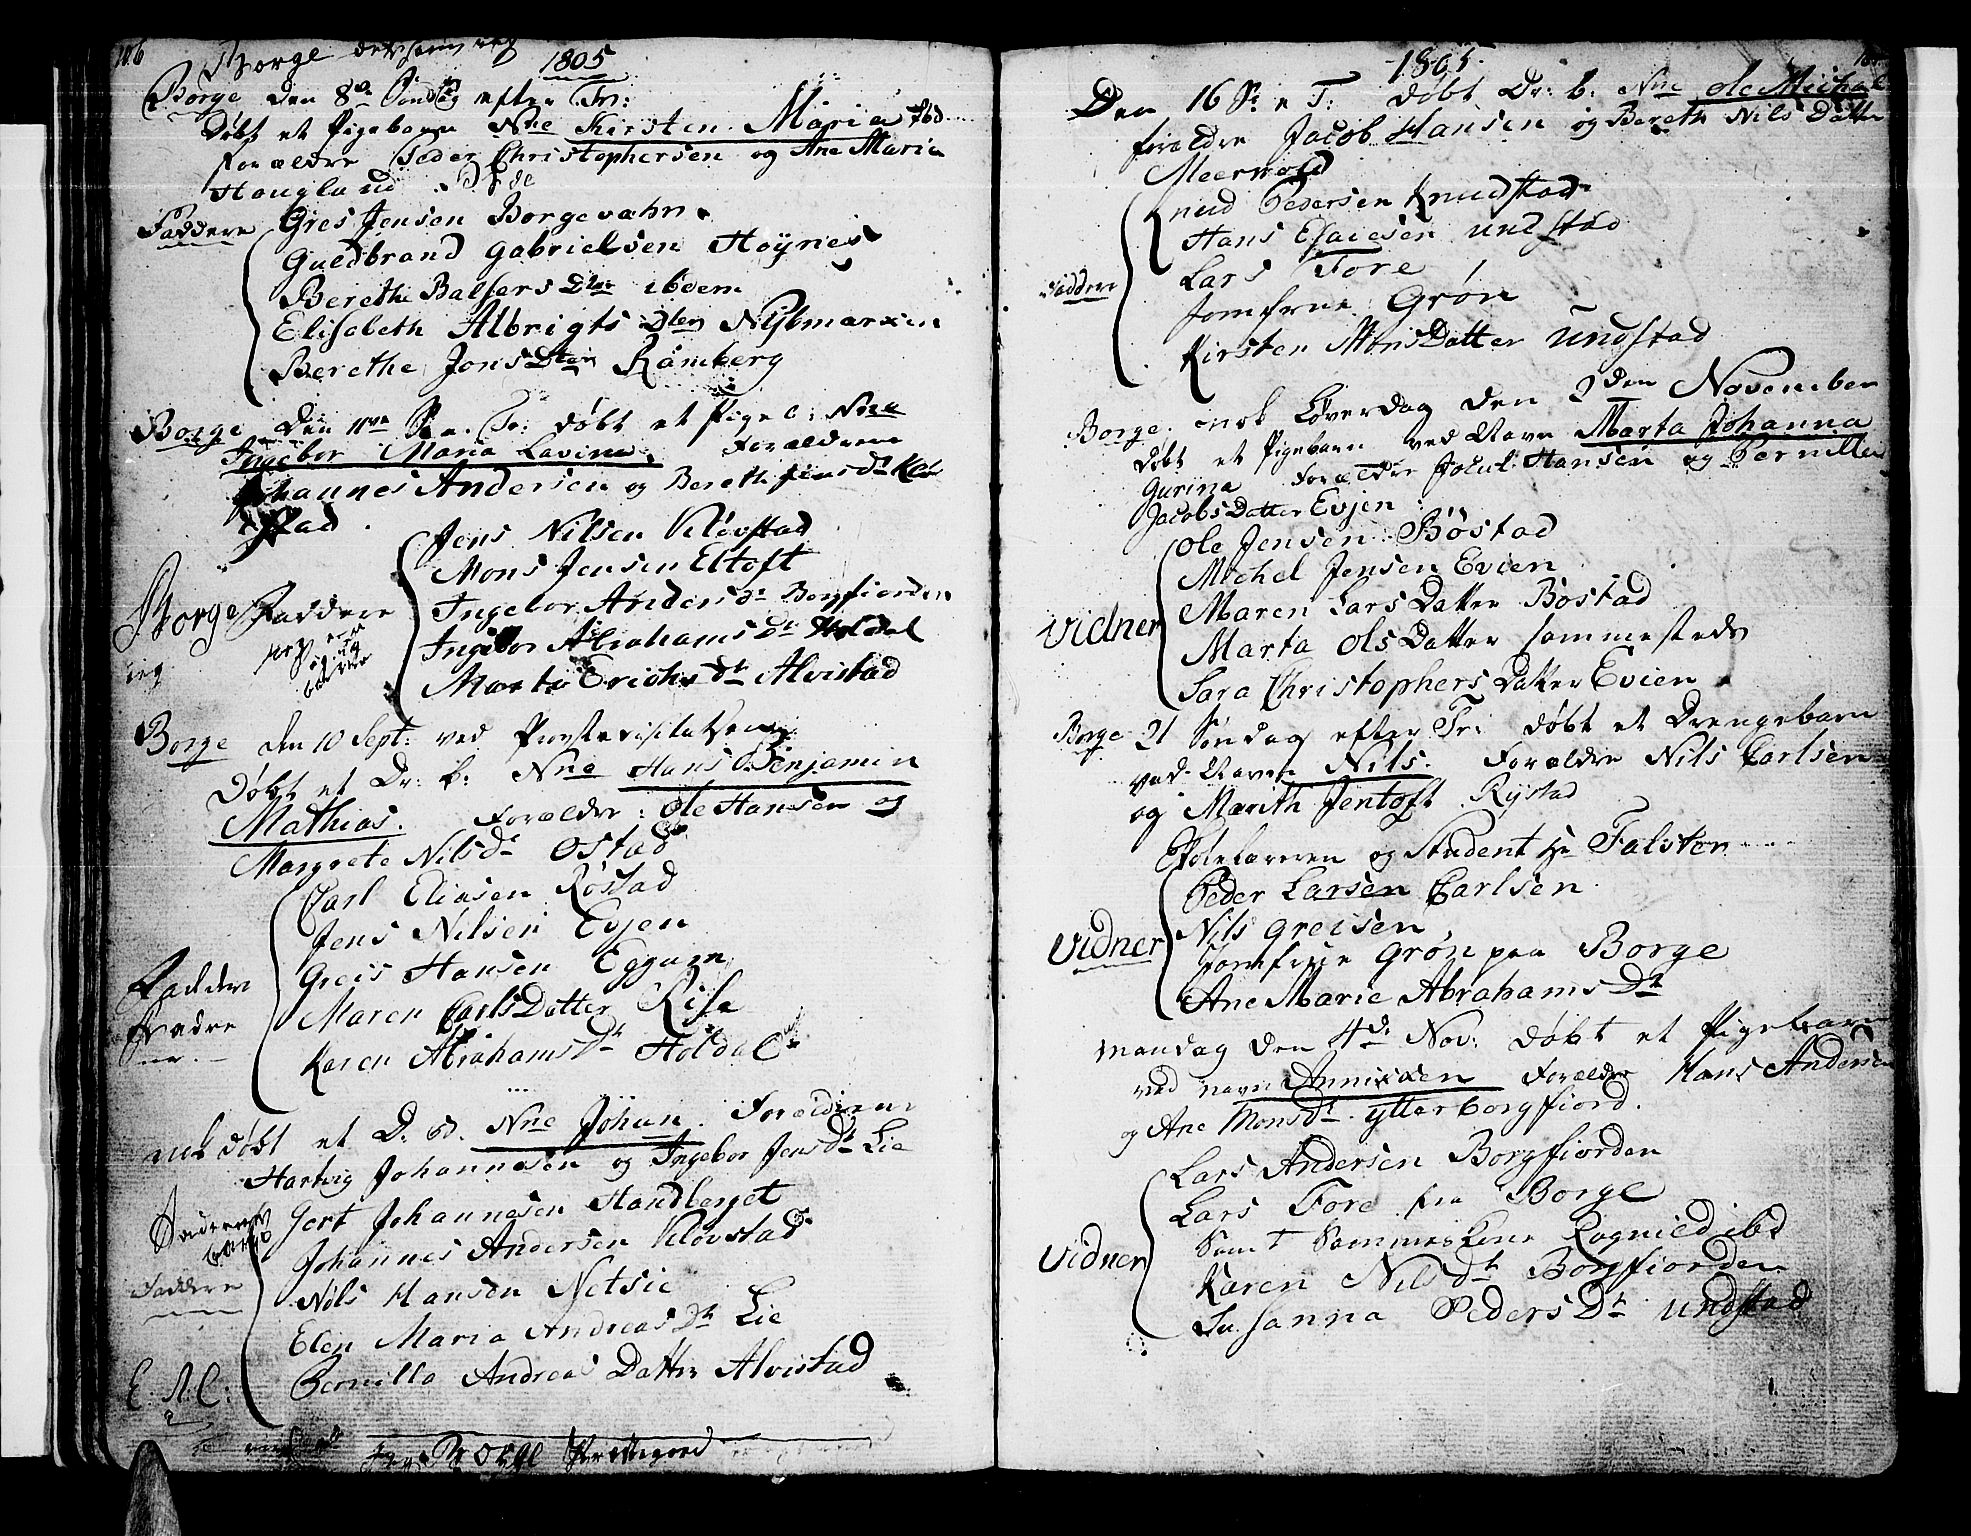 106
Borge
1805
Borge den 8de Søndag efter Tri:
Døbt et Pigebarn Nne Kirsten Maria
Forældre Peder Christophersen og Ane Maria
Hougland
Faddere Gres Jensen Borgevahn
Guldbrand Gabrielsen Høynes
Berethe Balsers Dtter ibdem
Elisabeth Albrigts Dter
Berethe Jons Dter Ramberg
Borge den 11te S. e. Tr: døbt et Pige b: Nne
Ingebor Maria Lavina. Forældrene
Johannes Andersen og Bereth Jens Dr Kløv
stad.
Jens Nilsen Kløvstad
Mons Jensen Eltoft
Ingebor Anders Dr Borgfiorden
Ingebor Abrahams Dr Holdal
Marta Erichs Dr Alvistad
Borge Faddere
Borge den 10 Sept: ved Provstevisitatsen
Døbt et Dr: b: Nne Hans Benjamin
Mathias. Forældre: Ole Hansen og
Margrete Nils Dr Ostad
Carl Eliasen Røstad
Jens Nilsen Evjen
Greis Hansen Eggum
Maren Carls Datter Risa
Karen Abrahams Dr Holdal
Fadder
nok døbt et D. b. Nne Johan. Forældrene
Hartvig Johannesen og Ingebor Jens Dr Lie
Gert Johannesen Handberget
Johannes Andersen Kløvstad
Nils Hansen Netsie
Elen Maria Andreas Dr Lie
Pernilla Andreas Datter Alvistad
Faddere
Borge Præstegord
1805.
Den 16 S: e T: døbt Dr: b. Nne Ole Michal
forældre Jacob Hansen og Bereth Nils Datter
Meervold
Knud Pedersen Knudstad
Hans Esaiesen Undstad
Lars Fore
Jomfrue Grøn
Kirsten Mons Datter Undstad
Faddere
Borge. nok Løverdag den 2den November
Døbt et Pigebarn ved Navn Marta Johanna
Gurina Forældre Jocul Hansen og Pernille
Jacobs Datter Evjen
Ole Jensen Bøstad
Michel Jensen Evien
Maren Lars Datter Bøstad
Marta Ols Datter sammesteds
Sara Christophers Datter Evien
Vidner
Borge 21 Søndag efter Tri døbt et Drengebarn
ved Navn Nils. Forældre Nils Carlsen
og Marith Jentoft Rystad
Skolelæreren og Student Hr Falster
Peder Larsen Carlsen
Nils Greisen
Jomfrue Grøn paa Borge
Ane Marie Abrahams Dr
Vidner
mandag den 4de Nov: døbt et Pigebarn
ved navn Annixken Forældre Hans Andersen
og Ane Mons Dr ytterborgfiord.
Lars Andersen Borgfiorden
Lars Fore fra Borge
Samt Sammes Kone Ragnild ibd
Karen Nils Dr Borgfiorden
Susanna Peders Dr Undstad
Vidner